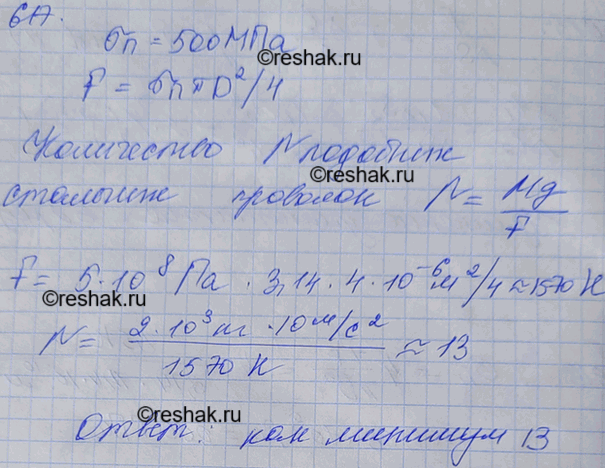 6А.
σп = 500 МПа
©reshak.ru
F = σп π D²/4
Количество N подобных
©reshak.ru
стальных проволок N = Mg/F
F = 5·10⁸ Па · 3,14 · 4 · 10⁻⁶ м²/4 ≈ 1570 Н
©reshak.ru
N = 2·10³ кг · 10 м/с² / 1570 Н ≈ 13
©reshak.ru
©reshak.ru
Ответ: как минимум 13